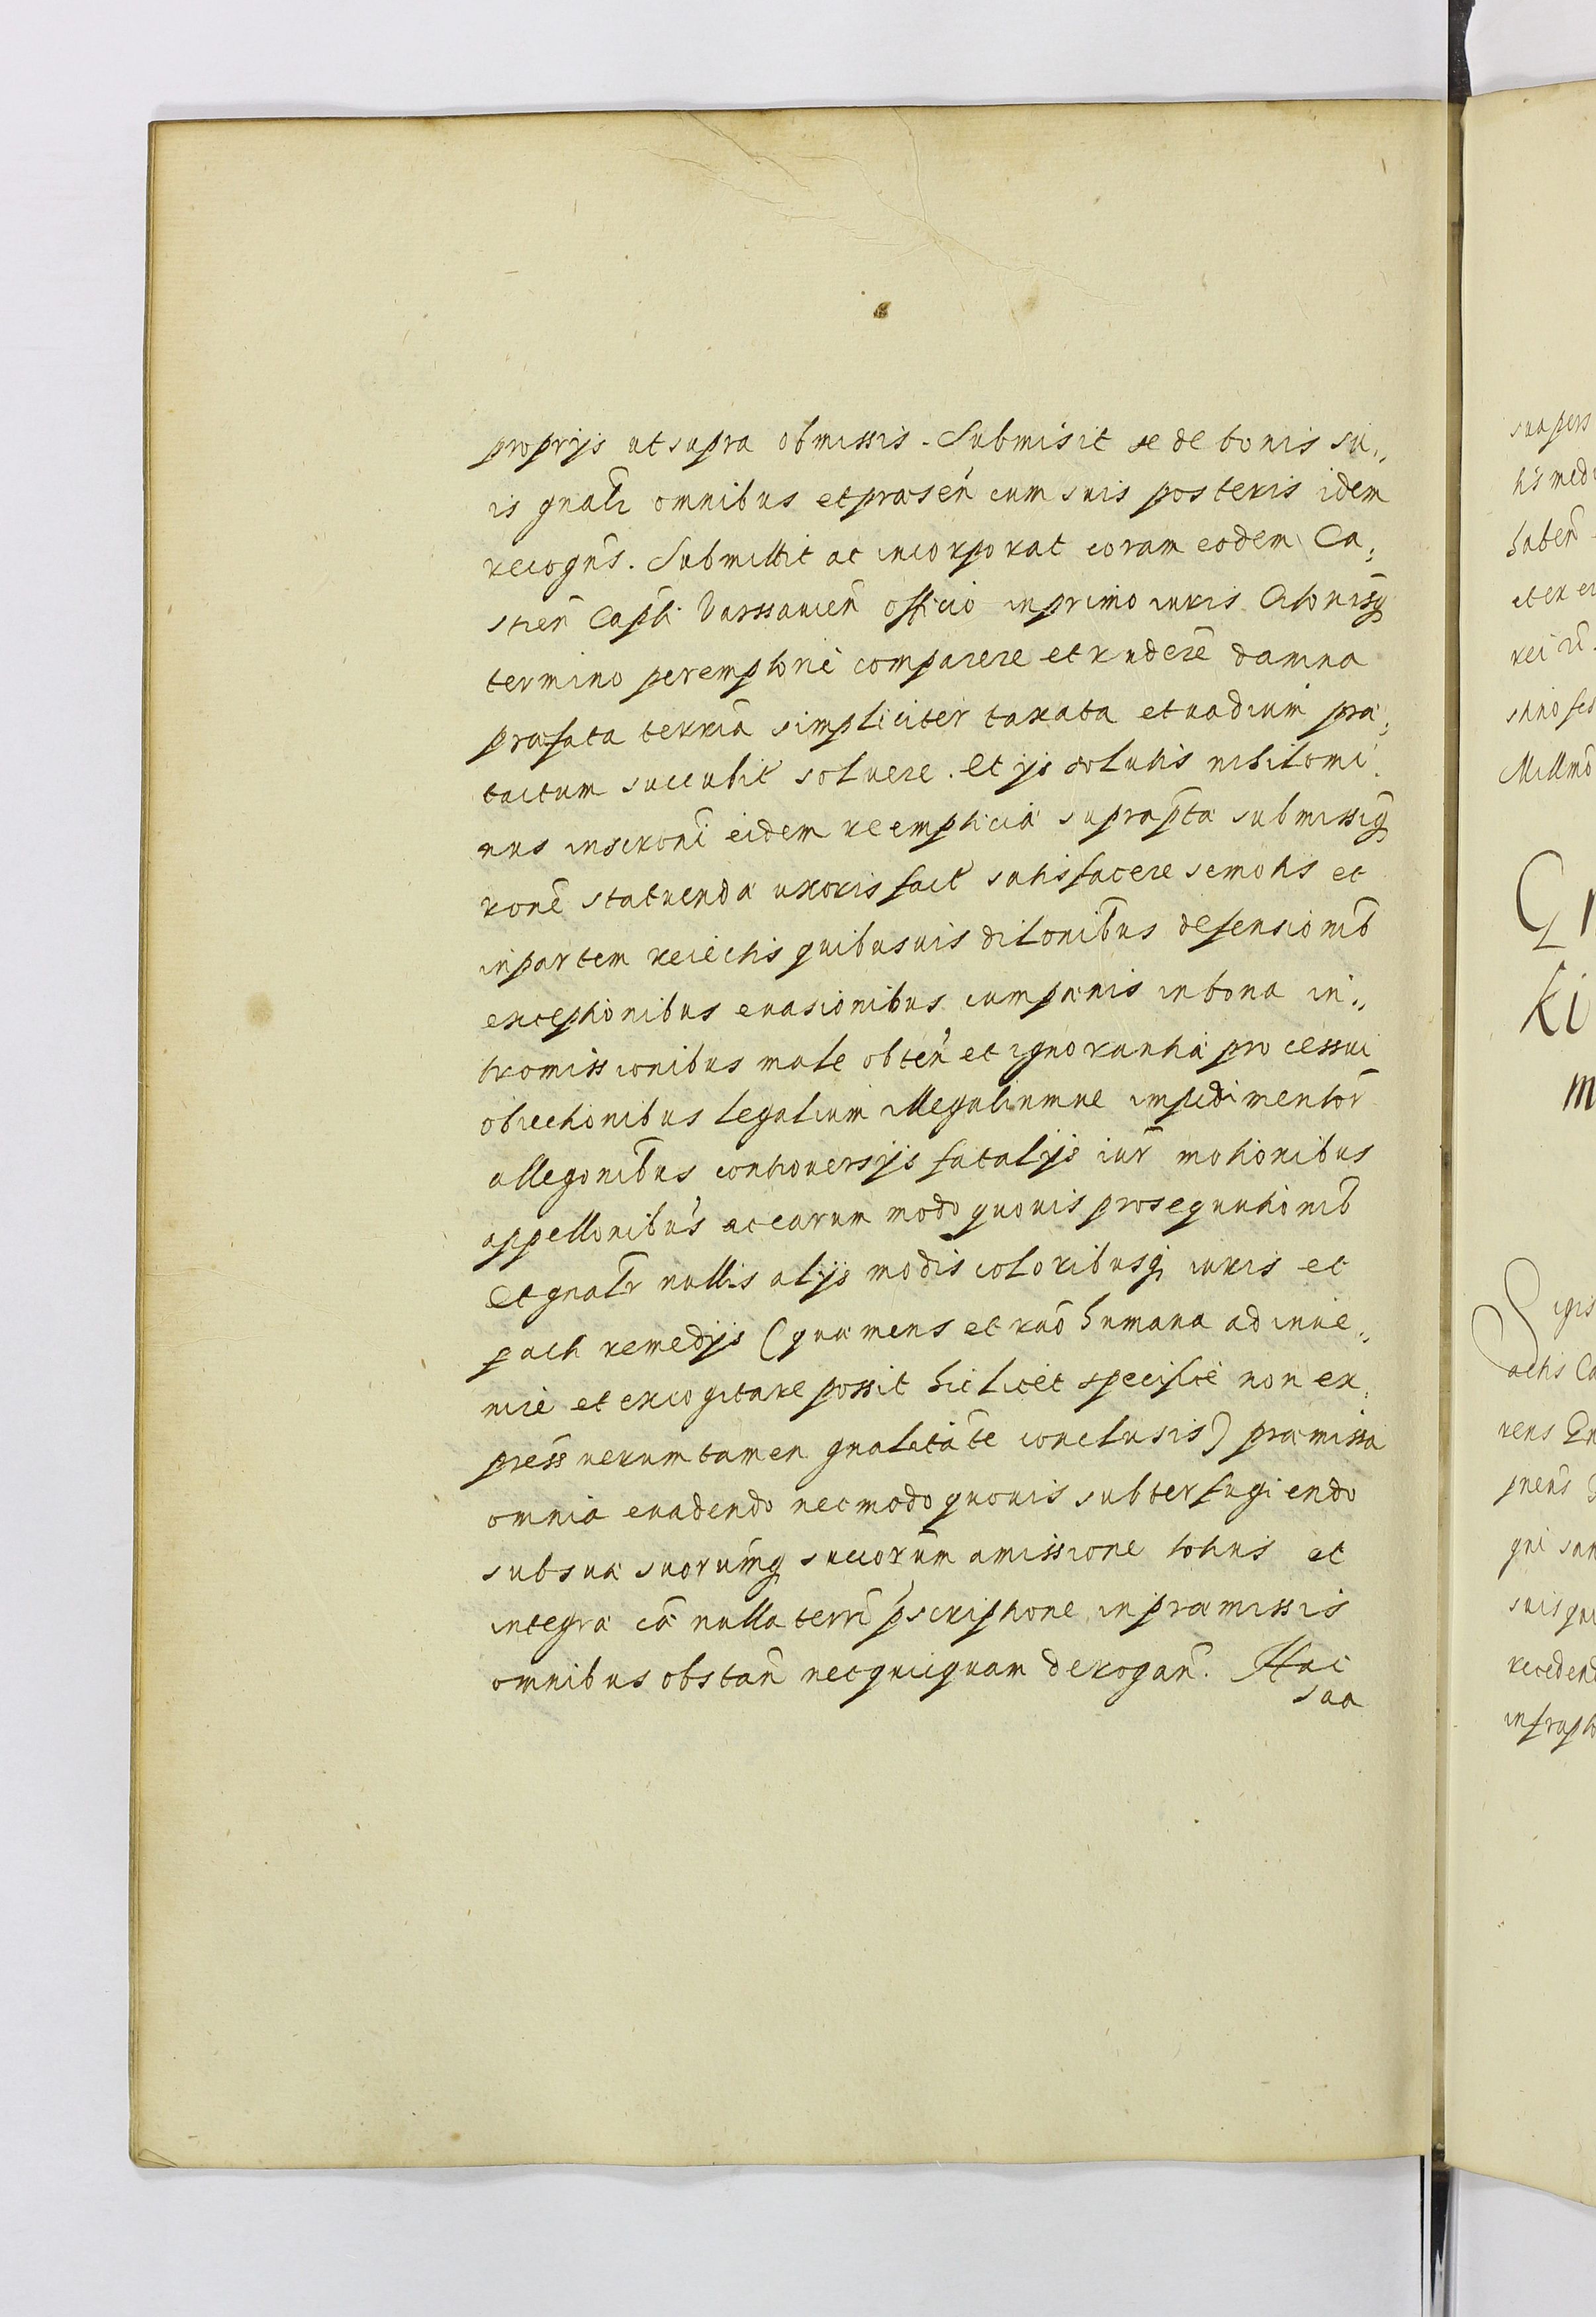 proprijs ut supra obmissis. Submisit se de bonis su„
is gnalr omnibus et præsen̄ cum suis posteris idem
recogns̄. Submittit ac incorporat coram eodem Ca„
stren̄ Capli Varssauien̄ officio in primo iuris Citōnisq
termino peremptorie comparere et rndere damna
præfata terrīa simpliciter taxata et uadium præ„
tactum succubit soluere. Et ijs solutis nihilomi„
nus inscrōni eidem reempticiæ suprapta submissiq
rōne statuenda uxoris fact̄ satisfacere semotis et
in partem reiectis quibusuis dilōnibus defensionib
exceptionibus euasionibus cum pænis in bona in„
tromissionibus male obten̄ et ignorantia processui
obiectionibus legalium illegaliumue impedimentor
allegōnibus controuersijs fatalijs iur̄ motionibus
appellōnibus ac earum modo quouis prosequutionib
et gnalr nullis alijs modis coloribusq iuris et
pacti remedijs (quæ mens et raō humana adinue„
nire et excogitare possit hic licet specifice non ex„
press uerumtamen gnalitate conclusis) præmissa
omnia euadendo nec modo quouis subterfugiendo
sub sua suorumq succorum amissione totius et
integra cā nulla terrī pscriptione in præmissis
omnibus obstan̄ nec quicquam derogan̄. Huc
saa
sua pers
his medi
haben̄
et ex ei
rei
Millmo
Ki
m
Sigis
actis Ca
rens
pnens
qui san
suis qui
recedend
infrapto